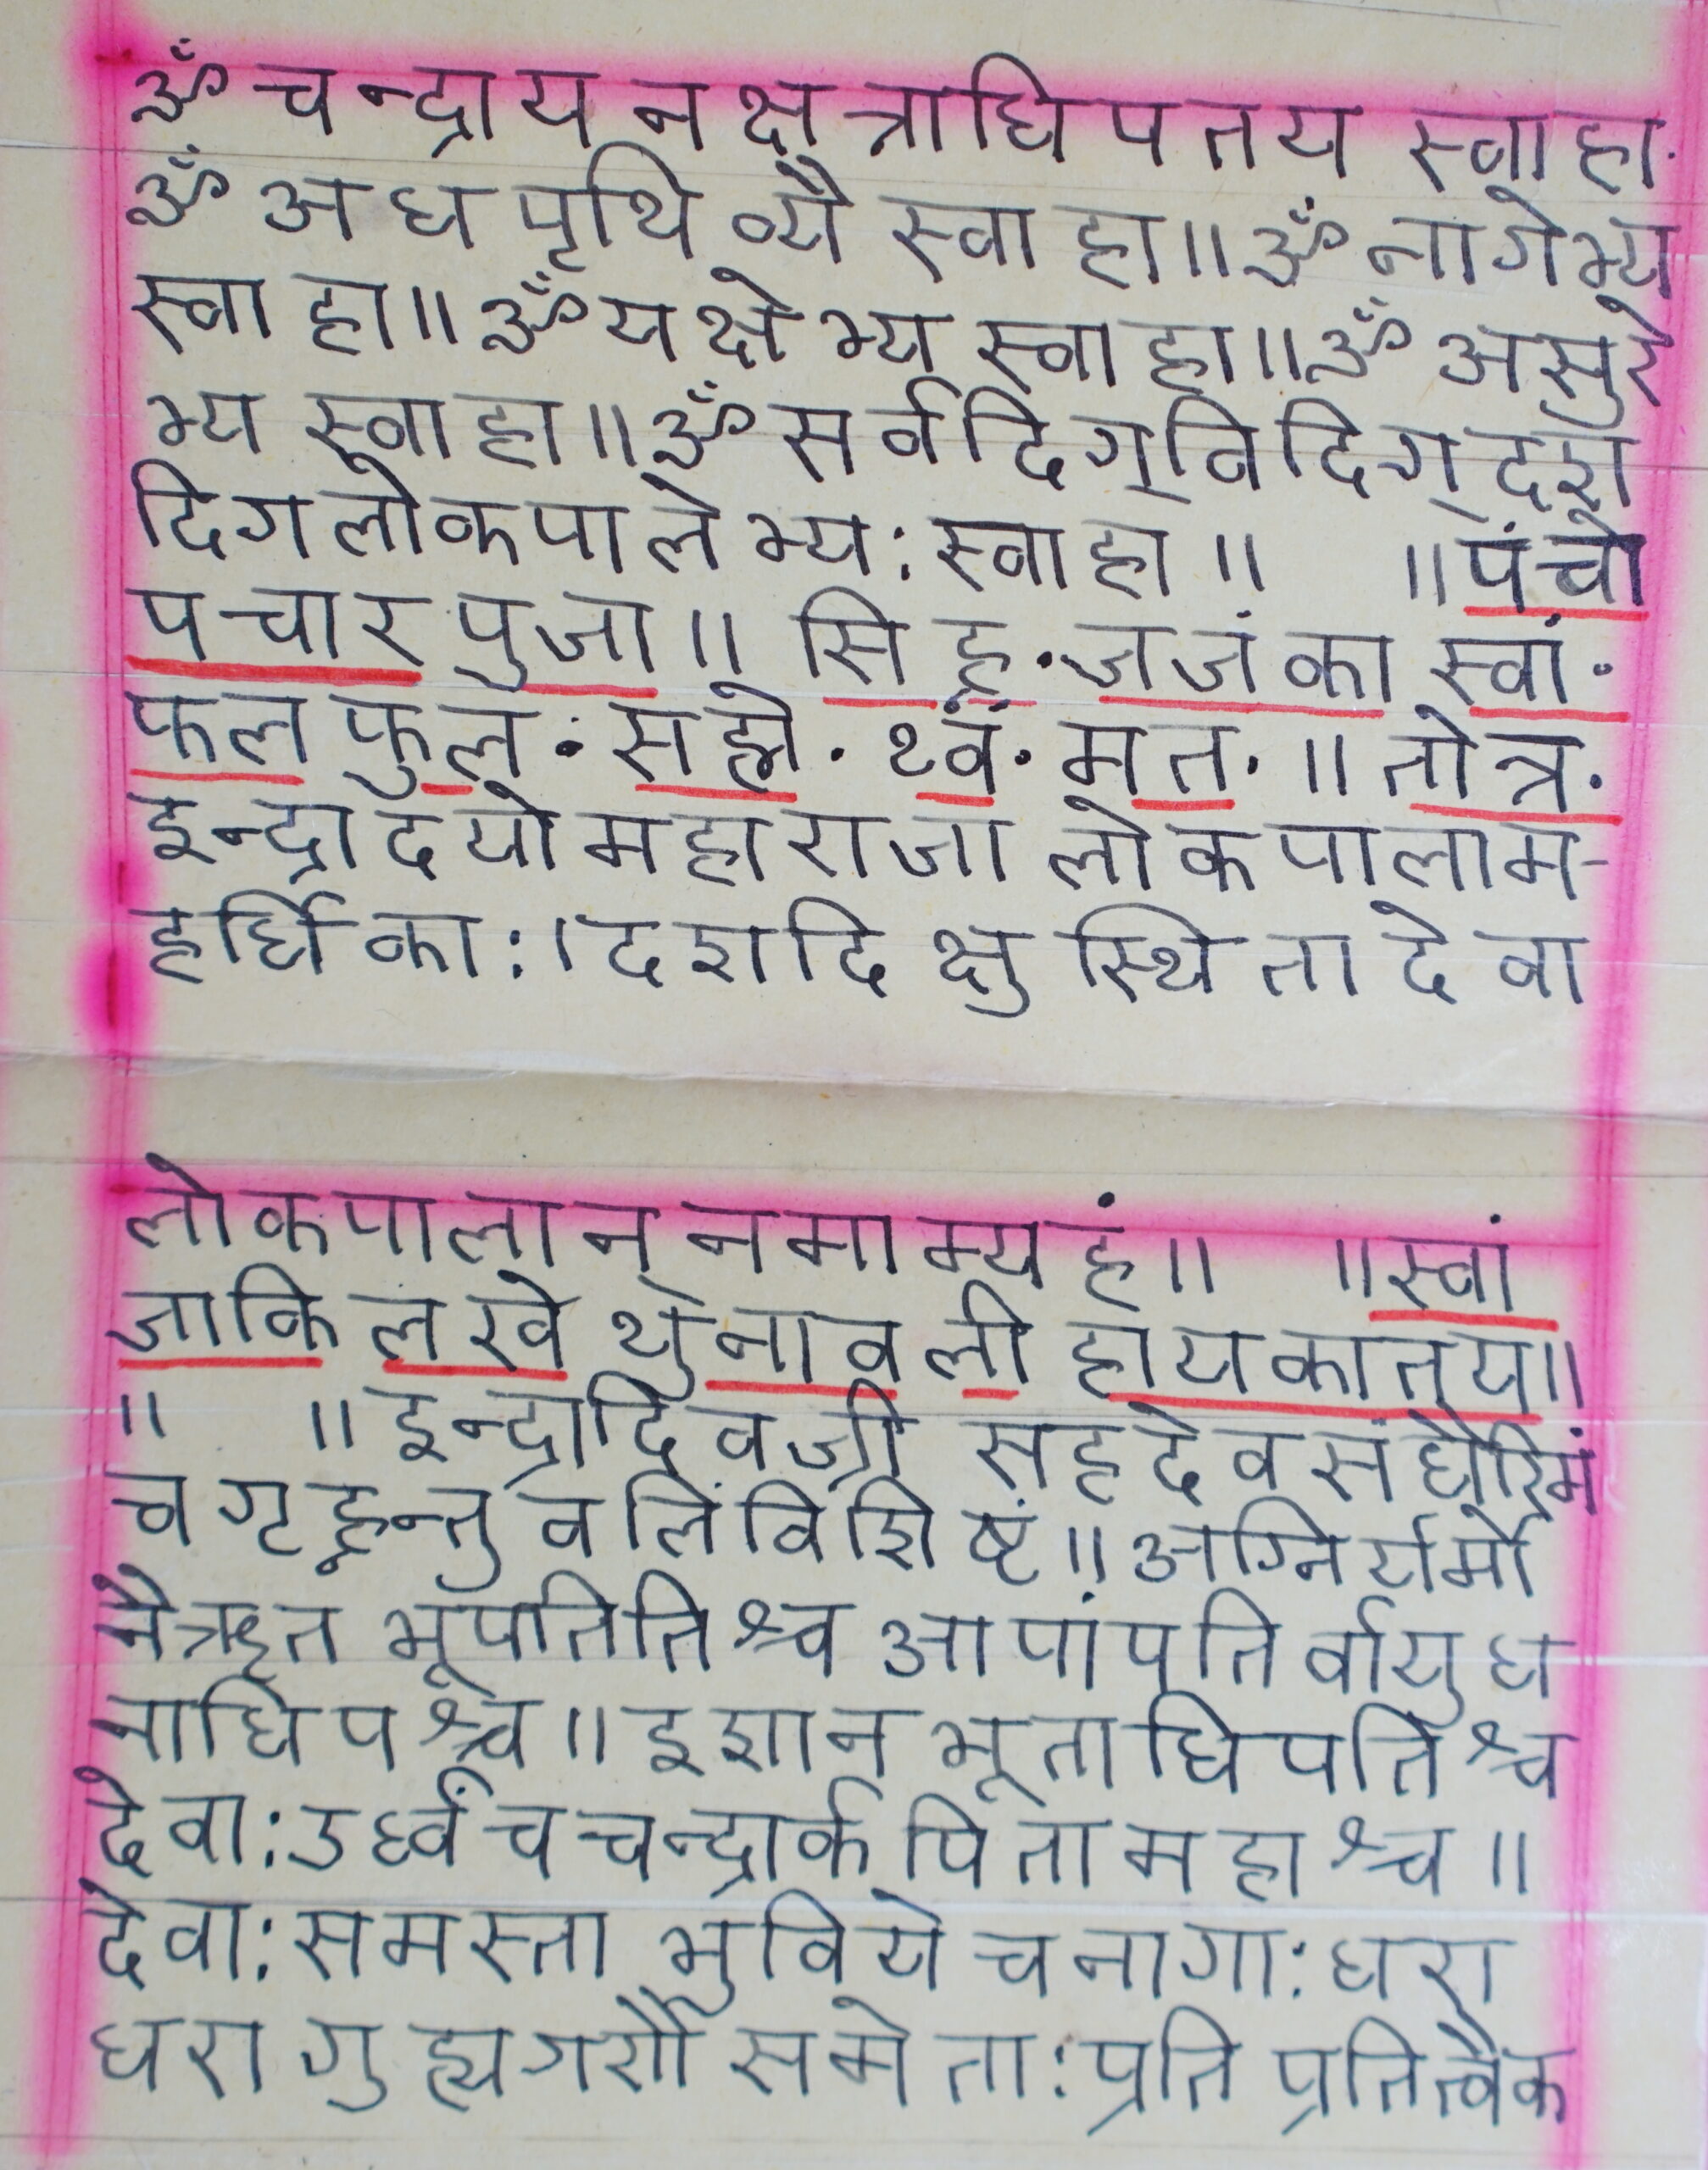 ॐ चन्द्राय नक्षत्राधिपतय स्वाहा.
ॐ अध पृथिव्यै स्वाहा॥ॐ नागेभ्य
स्वाहा॥ॐ यक्षेभ्य स्वाहा॥ॐ असुरे
भ्य स्वाहा॥ॐ सर्वदिग्विदिग् दश
दिगलोकपालेभ्य: स्वाहा॥ ॥पंचो
पचार पुजा॥ सिह्र.जजंका स्वां.
फल फुल. सह्मे. थ्वं. मत.॥ तोत्र.
इन्द्रादयो महाराजा लोकपालाम-
हर्धिका:।दशदिक्षु स्थिता देवा
लोकपालान् नमाम्यहं॥ ॥स्वां
जाकि लखे थुनाव ली हायकातय॥
॥ ॥इन्द्रादिवज्री सहदेवसंघैरिमं
च गृह्नन्तु वलिं विशिष्टं॥अग्निर्यमो
नैऋत भूपतितिश्च आपांपति र्वायुध
नाधिपश्च॥इशान भूताधिपतिश्च
देवा:उर्ध्वं च चन्द्रार्क पितामहाश्च॥
देवा:समस्ता भुवि ये च नागा:धरा
धरा गुह्यगणै समेता:प्रति प्रतित्वैक